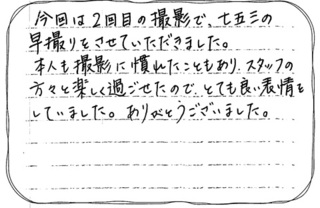 今回は2回目の撮影で、七五三の
早撮りをさせていただきました。
本人も撮影に慣れたこともあり、スタッフの
方々と楽しく過ごせたので、とても良い表情を
していました。ありがとうございました。